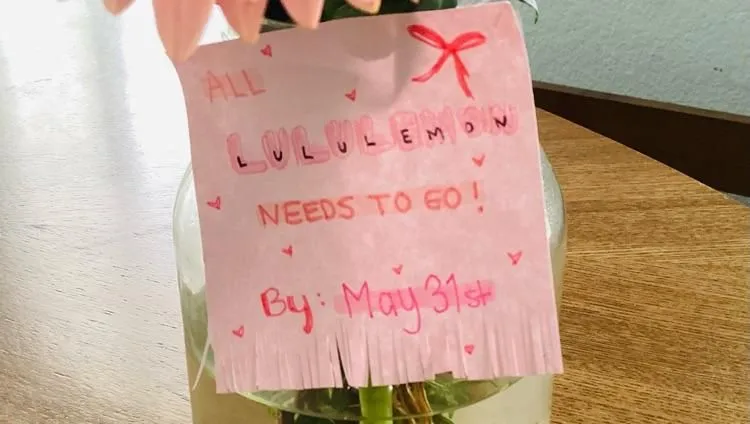 ALL
LULULEMON
NEEDS TO GO!
By: May 31st